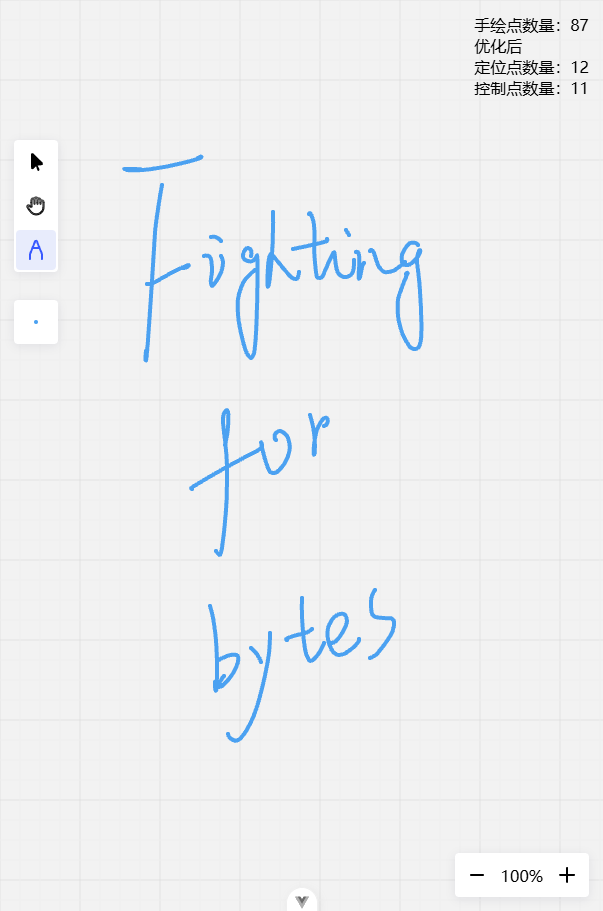 手绘点数量：87
优化后
定位点数量：12
控制点数量：11
Fighting
for
bytes
100%